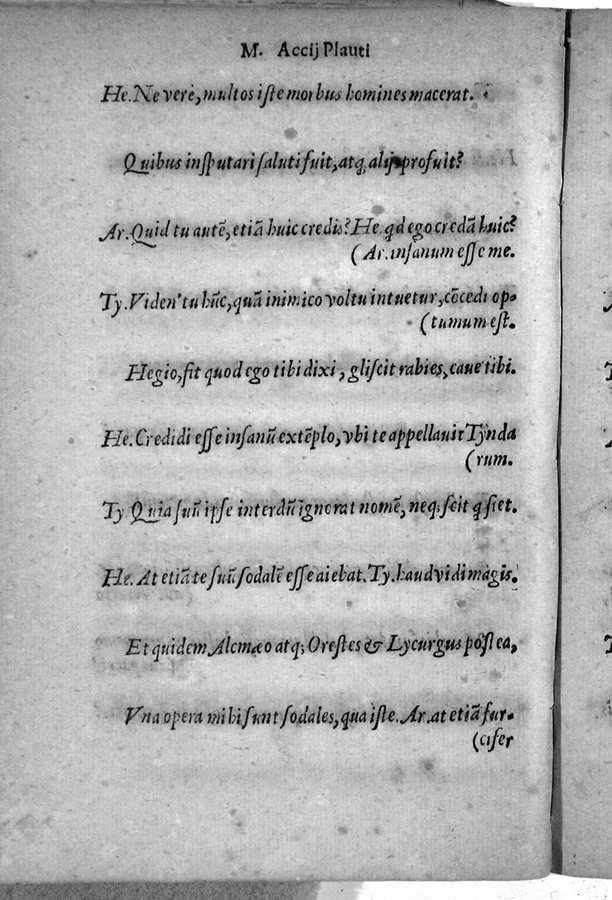 M. Accij Plauti
He. Ne verè, multos iſte morbus homines macerat.
Quibus inſputari ſaluti fuit, atq; alijs profuit?
Ar. Quid tu autẽ, etiã huic credis? He. qd ego credã huic?
(Ar. inſanum eſſe me.
Ty. Viden' tu hũc, quã inimico voltu intuetur, cõcedi op-
(tumum eſt.
Hegio, fit quod ego tibi dixi, gliſcit rabies, caue tibi.
He. Credidi eſſe inſanũ extẽplo, vbi te appellauit Tynda
(rum.
Ty Quia ſuũ ipſe interdũ ignorat nomẽ, neq; ſcit q ſiet.
He. At etiã te ſuũ ſodalẽ eſſe aiebat. Ty. haud vidi magis.
Et quidem Alcmæo atq; Oreſtes & Lycurgus poſt ea,
Vna opera mihi sunt ſodales, qua iſte. Ar. at etiã fur-
(cifer